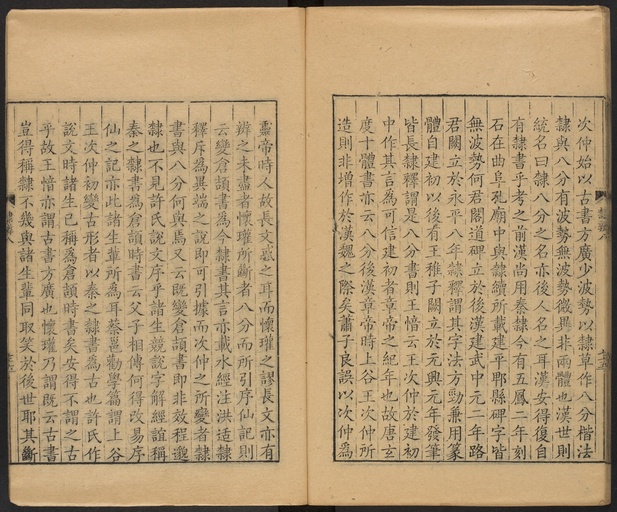 次仲始以古書方廣少波勢以隸草作八分楷法
隸與八分有波勢無波勢微異非兩體也漢世則
統名曰隸八分之名亦後人名之耳漢安得復自
有隸書乎考之前漢尚用秦隸今有五鳳二年刻
石在曲阜孔廟中與隸續所載建平郫縣碑字皆
無波勢何君閣道碑立於後漢建武中元二年路
君闕立於永平八年隸釋謂其字法方勁兼用篆
體自建初以後有王稚子闕立於元興元年發筆
皆長隸釋謂是八分書則王愔云王次仲於建初
中作其言為可信建初者章帝之紀年也故唐玄
度十體書亦云八分後漢章帝時上谷王次仲所
造則非增作於漢魏之際矣蕭子良誤以次仲為
靈帝時人故長文惑之耳而懷瓘之謬長文亦有
辨之未盡者懷瓘所斷者八分而所引序仙記則
云變倉頡書為今隸書其言亦載水經注洪造隸
釋斥為異端之說即可引據而次仲之所變者隸
書與八分何與焉又云既變倉頡書即非效程邈
隸也不見許氏說文序乎諸生競說字解經諠稱
秦之隸書為倉頡時書云父子相傳何得改易序
仙之記亦此諸生輩所為耳蔡邕勸學篇謂上谷
王次仲初變古形者以秦之隸書為古也許氏作
說文時諸生已稱為倉頡時書矣安得不謂之古
乎故王愔亦謂古書方廣也懷瓘乃謂既云古書
豈得稱隸不幾與諸生輩同取笑於後世耶其斷